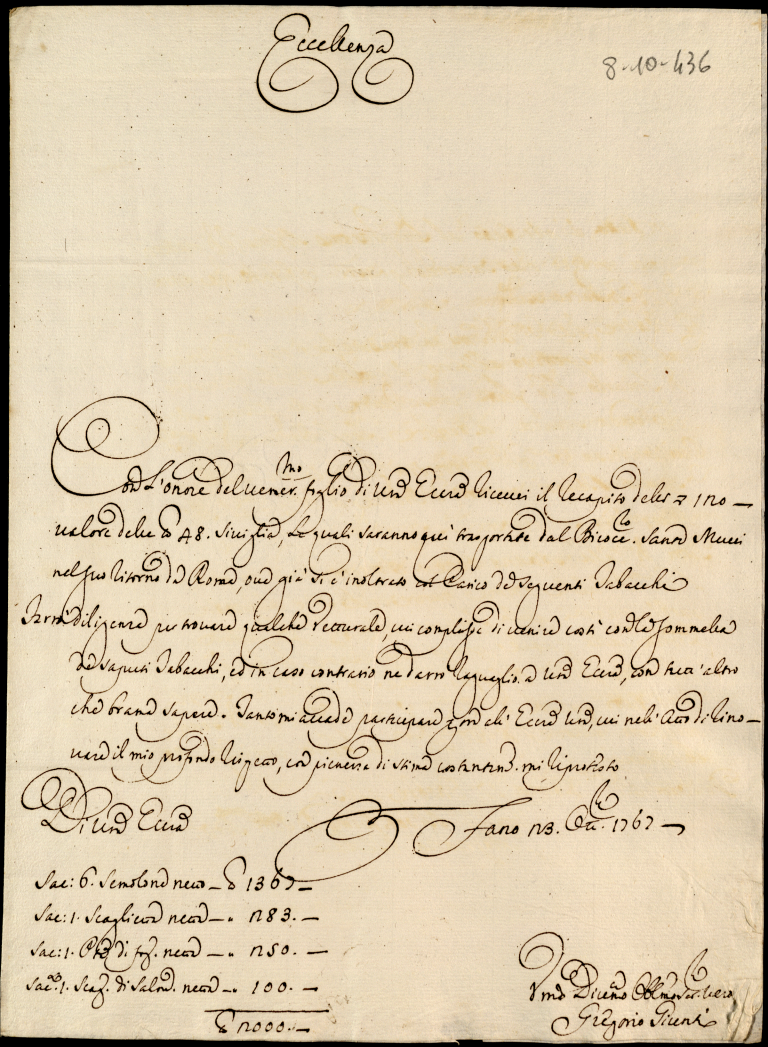 Eccellenza
8-10-436
Con L'onore del vener.mo foglio di Vra Eccza ricevei il recapito delle
valore delle 48. Siviglia, Le quali saranno qui trasportate dal Bicocc.ro Santo Mucci
nel suo ritorno da Roma, ove già si è inoltrato col Carico de seguenti Tabacchi
Farrò diligenza per trovare qualche vetturale, cui complisse di venire costì con la
de saputi Tabacchi, ed in caso contrario ne darrò ragguaglio a Vra Eccza, con tutt'altro
che brama sapere. Tanto mi accade partecipare all' Eccza Vra, cui nell' Atto di rino-
vare il mio profondo rispetto, con pienezza di stima mi riprotesto
Di Vra Eccza
Fano 13. Ott.re 1767
Sac: 6. Semolone netto 1367
Sac: 1. Scaglietta netta 183.
Sac: 1. netta 150.
Sac: 1. Scag. di netta 100.
Gregorio